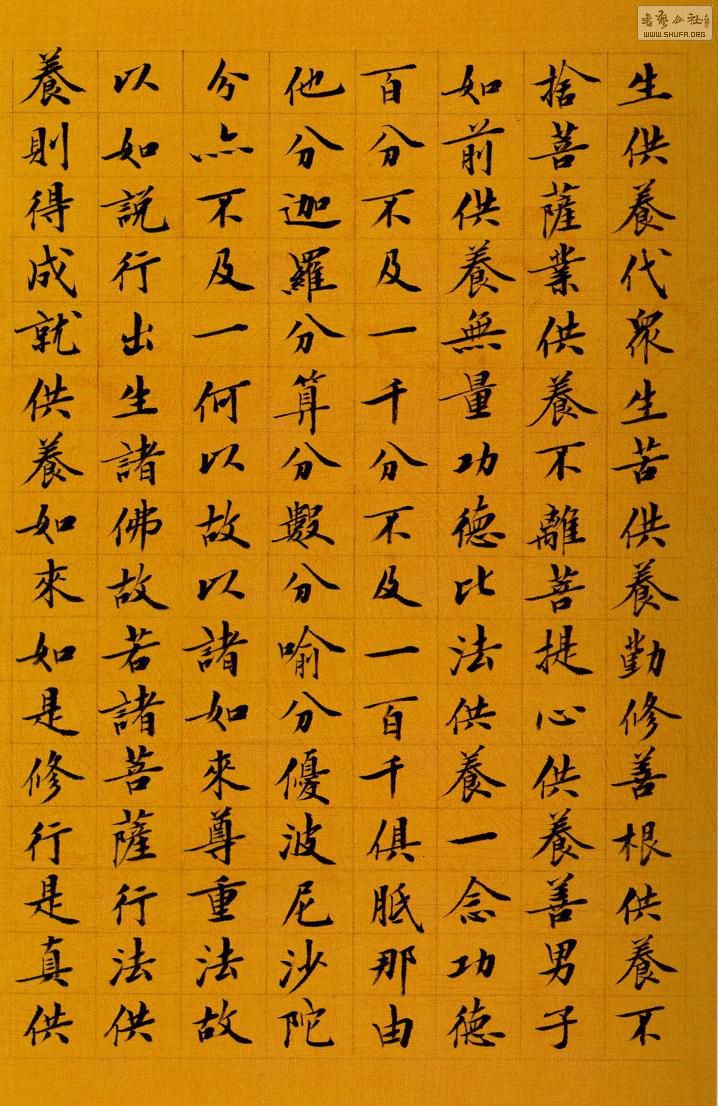 生供養代衆生苦供養勤修善根供養不
捨菩薩業供養不離菩提心供養善男子
如前供養無量功德比法供養一念功德
百分不及一千分不及一百千俱胝那由
他分迦羅分算分數分喻分優波尼沙陀
分亦不及一何以故以諸如來尊重法故
以如說行出生諸佛故若諸菩薩行法供
養則得成就供養如來如是修行是真供
書藝公社
WWW.SHUFA.ORG